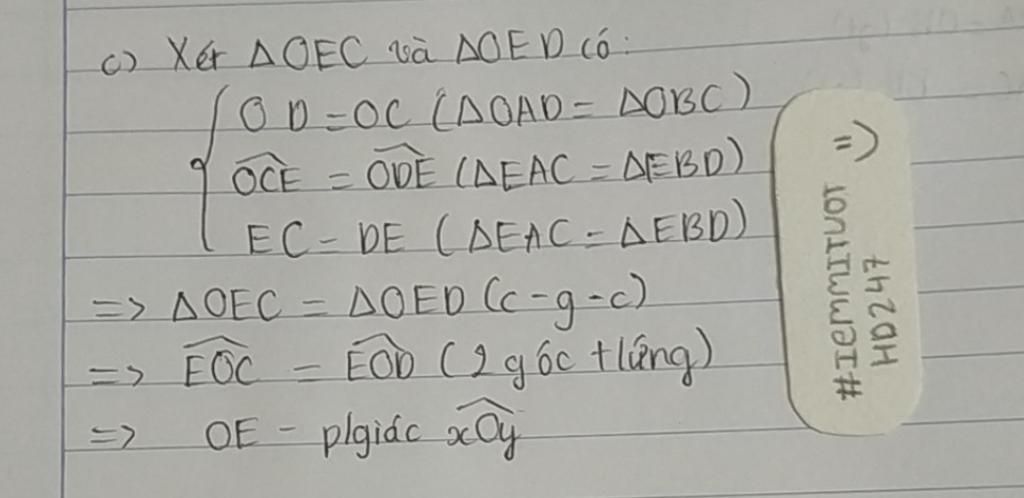 c) Xét ΔOEC và ΔOED có:
OD = OC (ΔOAD = ΔOBC)
OCE = ODE (ΔEAC = ΔEBD)
EC = DE (ΔEAC = ΔEBD)
=> ΔOEC = ΔOED (c-g-c)
=> EOC = EOD (2 góc tứng)
=> OE - p/giác xOy
=)
HDZ47